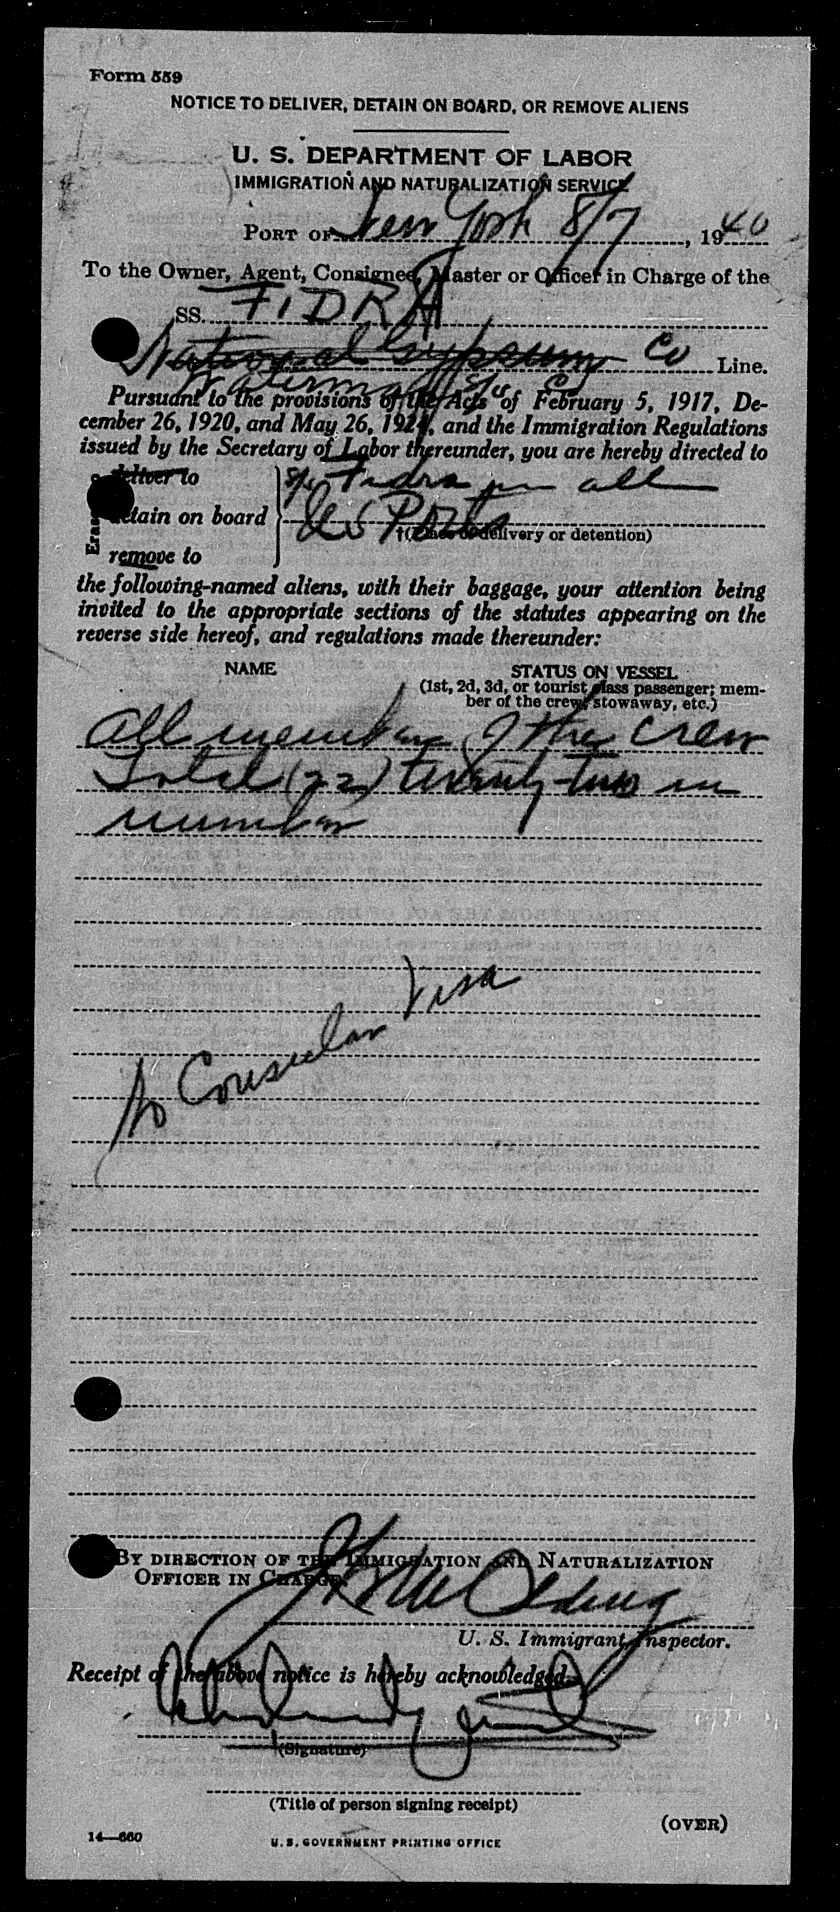 Form 559
NOTICE TO DELIVER, DETAIN ON BOARD, OR REMOVE ALIENS
U. S. DEPARTMENT OF LABOR
IMMIGRATION AND NATURALIZATION SERVICE
PORT OF New York 8/7, 1940
To the Owner, Agent, Consignee, Master or Officer in Charge of the
SS. FIDRA
National Gypsum Co Line.
Waterman S/S Co
Pursuant to the provisions of the Acts of February 5, 1917, De-
cember 26, 1920, and May 26, 1924, and the Immigration Regulations
issued by the Secretary of Labor thereunder, you are hereby directed to
deliver to
detain on board
remove to
S/S Fidra in all
US Ports
†(Place of delivery or detention)
the following-named aliens, with their baggage, your attention being
invited to the appropriate sections of the statutes appearing on the
reverse side hereof, and regulations made thereunder:
NAME STATUS ON VESSEL
(1st, 2d, 3d, or tourist class passenger; mem-
ber of the crew, stowaway, etc.)
All members of the crew
Total (22) twenty-two in
number
No Consular Visa
BY DIRECTION OF THE IMMIGRATION AND NATURALIZATION
OFFICER IN CHARGE:
U. S. Immigrant Inspector.
Receipt of the above notice is hereby acknowledged.
(Signature)
(Title of person signing receipt)
(OVER)
14—660
U. S. GOVERNMENT PRINTING OFFICE